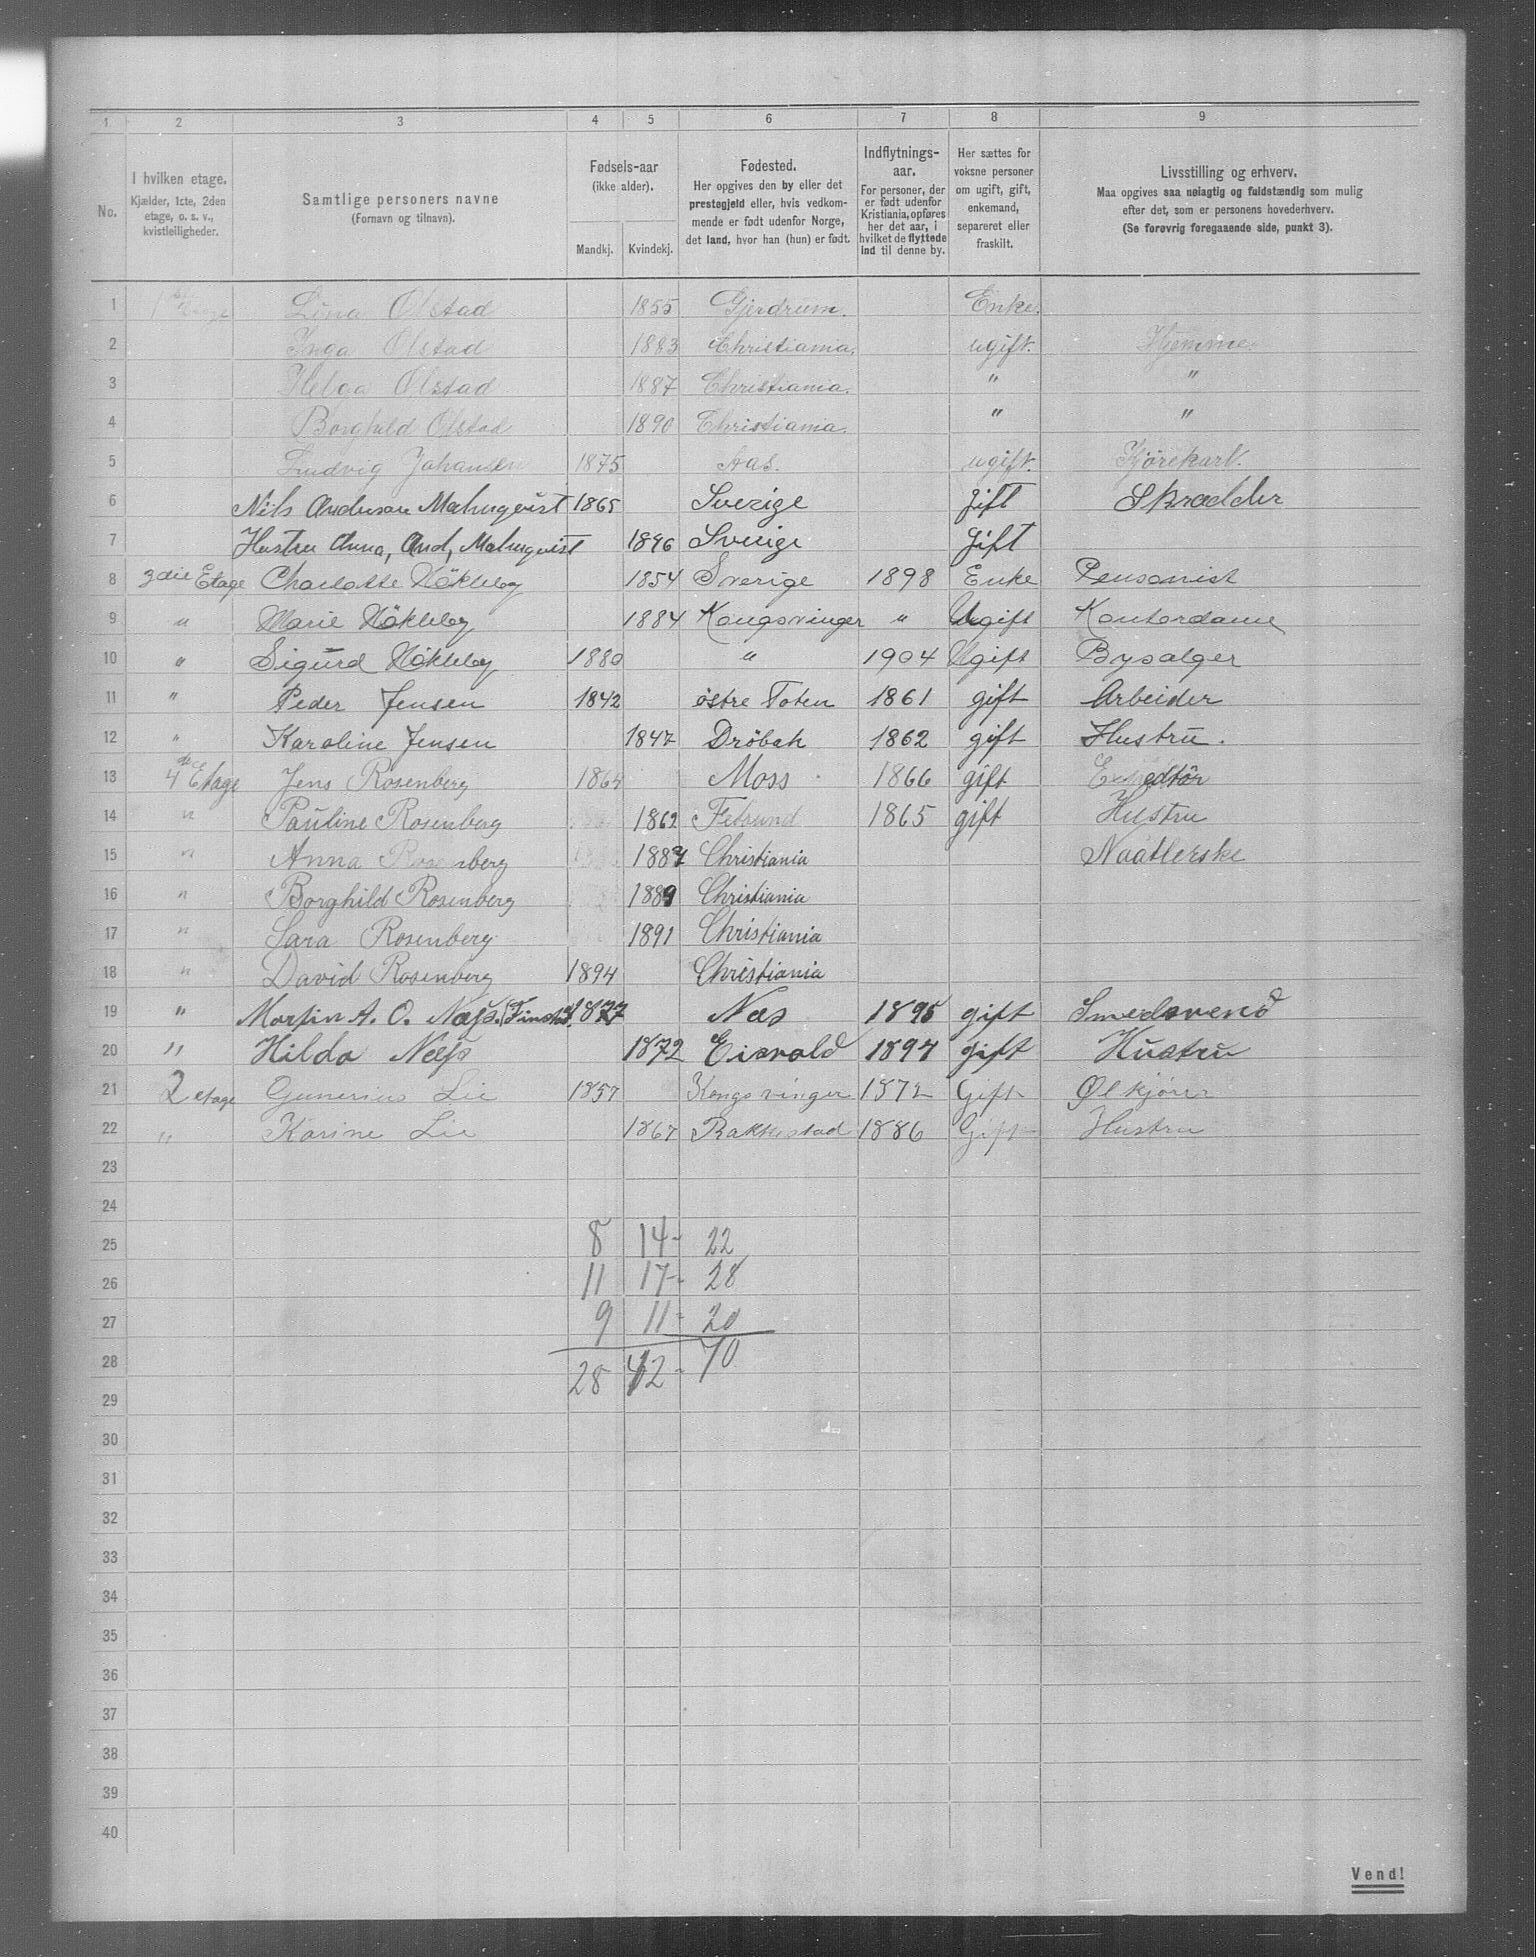 1 2 3 4 5 6 7 8 9
No.
I hvilken etage.
Kjælder, 1cte, 2den
etage, o. s. v.,
kvistleiligheder.
Samtlige personers navne
(Fornavn og tilnavn).
Fødsels-aar
(ikke alder).
Mandkj. Kvindekj.
Fødested.
Her opgives den by eller det
prestegjeld eller, hvis vedkom-
mende er født udenfor Norge,
det land, hvor han (hun) er født.
Indflytnings-
aar.
For personer, der
er født udenfor
Kristiania, opføres
her det aar, i
hvilket de flyttede
ind til denne by.
Her sættes for
voksne personer
om ugift, gift,
enkemand,
separeret eller
fraskilt.
Livsstilling og erhverv.
Maa opgives saa nøiagtig og fuldstændig som mulig
efter det, som er personens hovederhverv.
(Se forøvrig foregaaende side, punkt 3).
1 Lina Olstad 1855 Gjerdrum. Enke.
2 Inga Olstad 1883 Christiania. ugift. Hjemme.
3 Helga Olstad 1887 Christiania. " "
4 Borghild Olstad 1890 Christiania. " "
5 Ludvig Johansen 1875 Aas. ugift. Kjørekarl.
6 Nils Anderson Malmqvist 1865 Sverige gift Skrædder
7 Hustru Anna, And, Malmqvist 1846 Sverige gift
8 3die Etage Charlotte Hökleby 1854 Sverige 1898 Enke Pensonist
9 " Marie Hökleby 1884 Kongsvinger " Ugift Kontordame
10 " Sigurd Hökleby 1880 " 1904 Ugift Bysalger
11 " Peder Jensen 1842 østre Toten 1861 gift Arbeider
12 " Karoline Jensen 1847 Drøbak 1862 gift Hustru.
13 4de Etage Jens Rosenberg 1864 Moss 1866 gift
14 " Pauline Rosenberg 1862 Fetsund 1865 gift Hustru
15 " Anna Rosenberg 1887 Christiania Naatlerske
16 " Borghild Rosenberg 1889 Christiania
17 " Sara Rosenberg 1891 Christiania
18 " David Rosenberg 1894 Christiania
19 " Martin A. O. Næss. 1877 Næs 1895 gift Smedsvend
20 " Hilda Næss 1872 Eisvold 1894 gift Hustru
21 2 etage Gunerius Lie 1857 Kongsvinger 1872 Gift Ølkjører
22 " Karine Lie 1867 Rakkestad 1886 Gift Hustru
23
24
25 8 14- 22
26 11 17- 28
27 9 11- 20
28 28 42- 70
29
30
31
32
33
34
35
36
37
38
39
40
Vend!